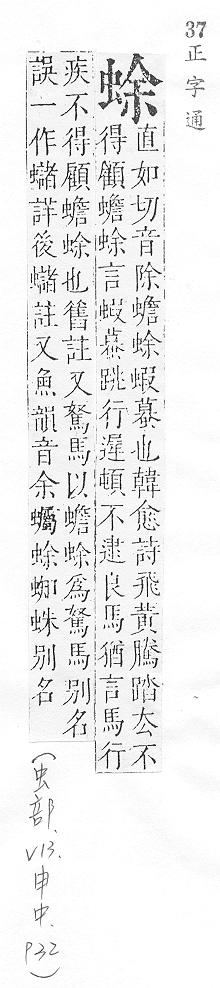 37正字通
蜍
直如切音除蟾蜍蝦蟇也韓愈詩飛黃騰踏去不
得顧蟾蜍言蝦蟇跳行遲頓不逮良馬猶言馬行
疾不得顧蟾蜍也舊註又駑馬以蟾蜍爲駑馬别名
誤一作蠩詳後蠩註又魚韻音余蠾蜍蜘蛛别名
(虫部、V13.申中.P32)